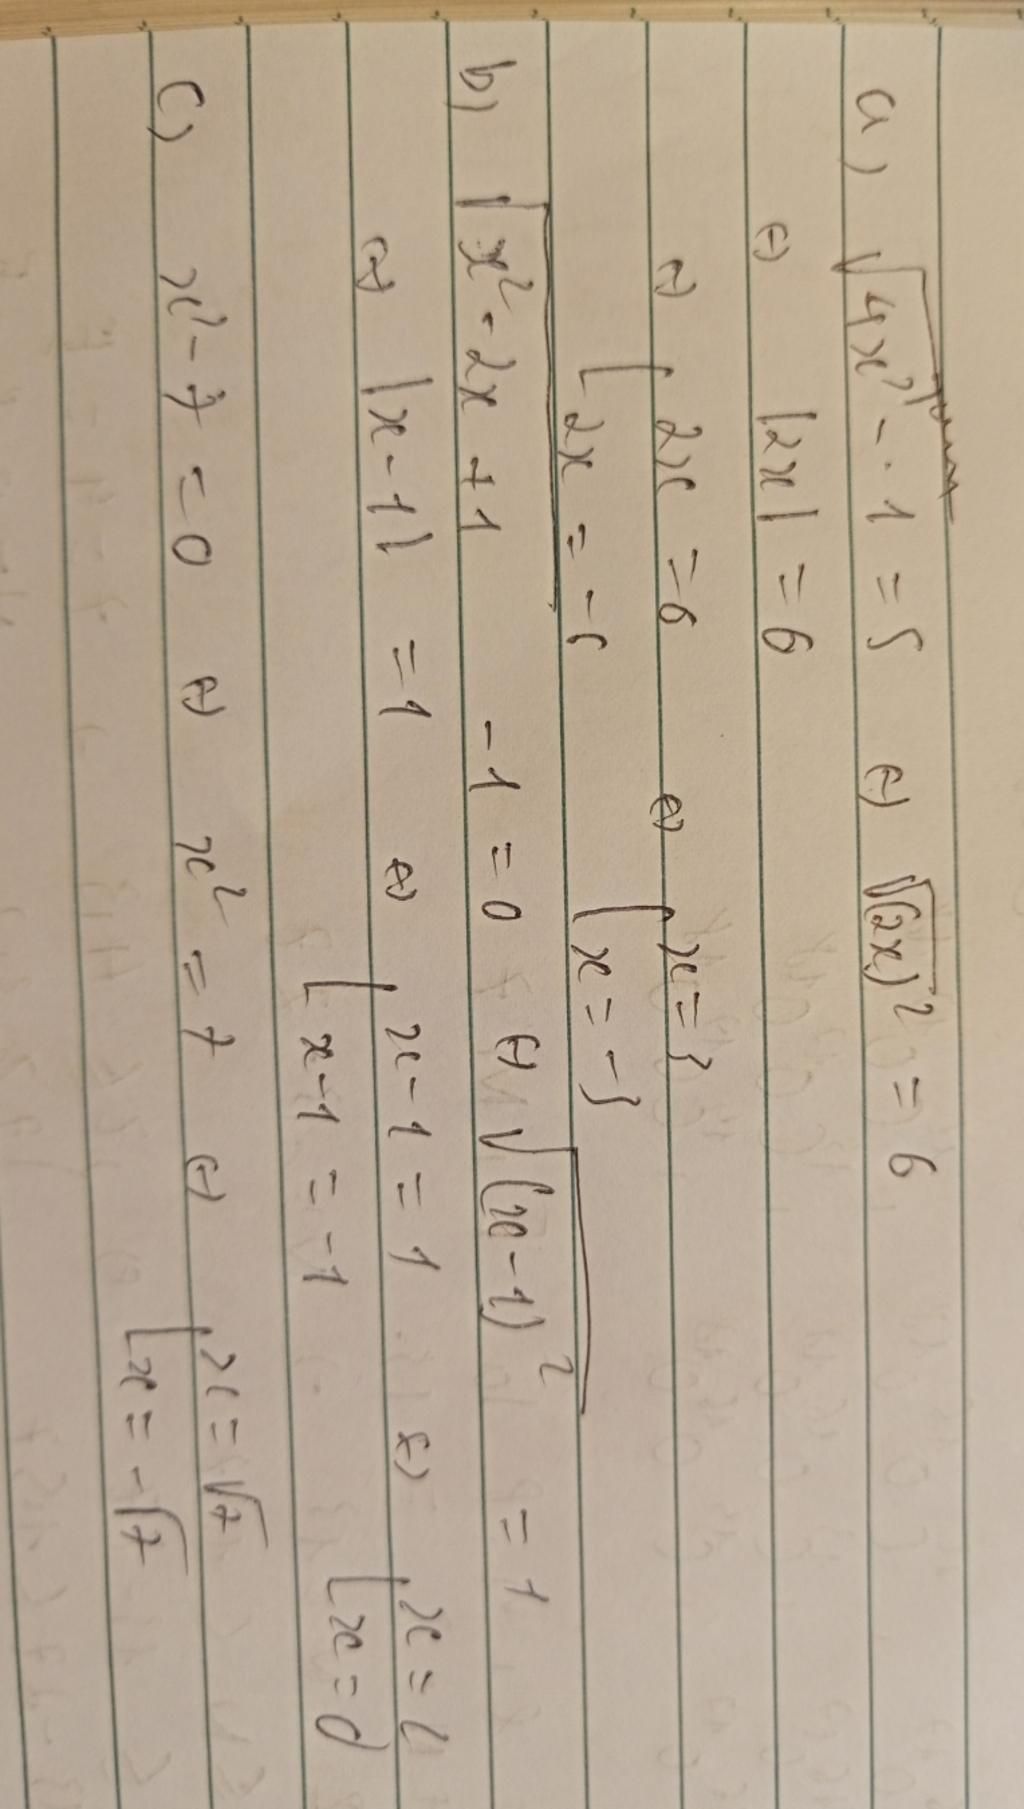 a) √4x² - 1 = 5 ⇔ √(2x)² = 6
⇔ |2x| = 6
⇔ [ 2x = 6 ⇔ [ x = 3
2x = -6 x = -3
b) √x² - 2x + 1 - 1 = 0 ⇔ √(x-1)² = 1
⇔ |x-1| = 1 ⇔ [ x-1 = 1 ⇔ [ x = 2
x-1 = -1 x = 0
c) x² - 7 = 0 ⇔ x² = 7 ⇔ [ x = √7
x = -√7